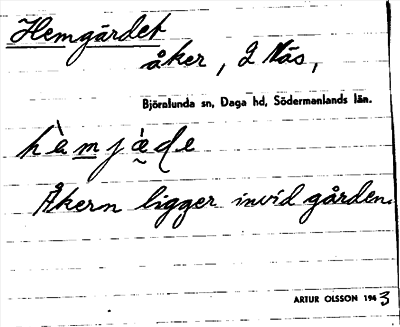 Hemgärdet
åker, 2 Näs,
Björnlunda sn, Daga hd, Södermanlands län.
hà̀mjä̀de
Åkern ligger invid gården.
ARTUR OLSSON 1943